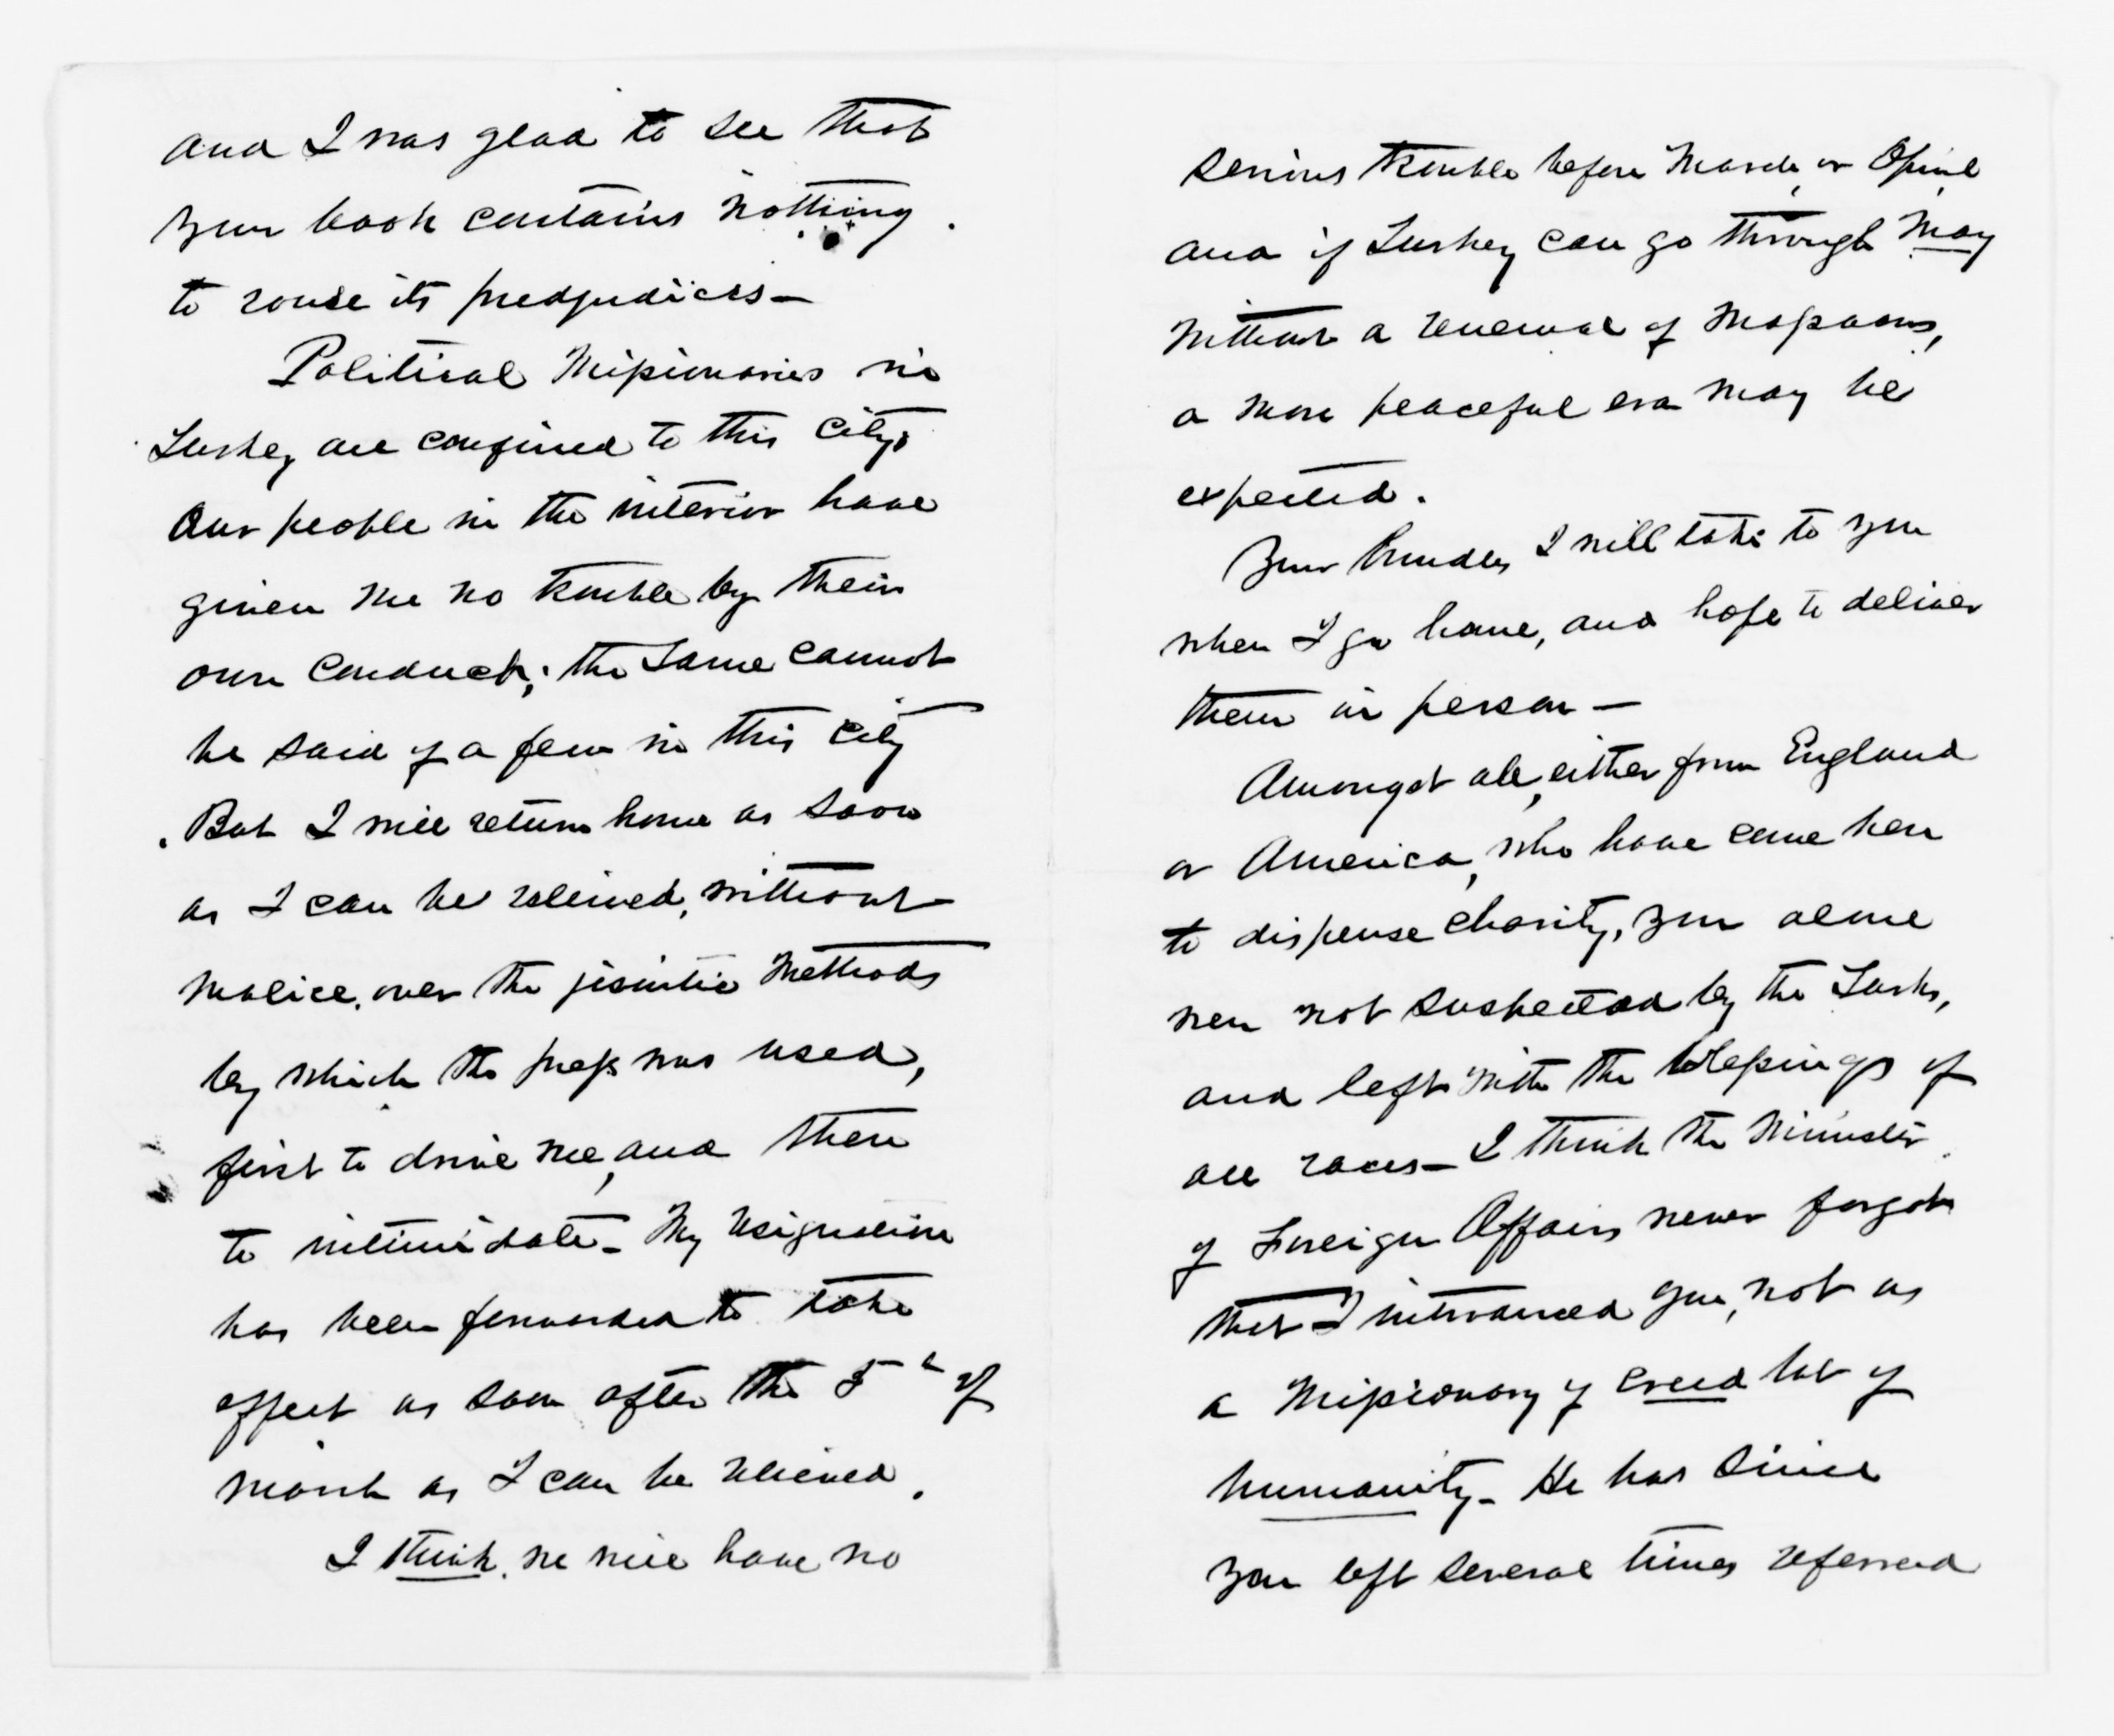 and I was glad to see that
your book contains nothing
to rouse its predjudices—
Political Missionaries in
Turkey are confined to this City.
Our people in the interior have
given me no trouble by their
own conduct; the same cannot
be said of a few in this city
But I will return home as soon
as I can be releived, without
malice, over the jesuitic methods
by which the press was used,
first to drive me, and then
to intimidate— My resignation
has been forwarded to take
effect as soon after the 5th of
March as I can be releived.
I think we will have no
serious trouble before March, or April
and if Turkey can go through May
without a renewal of massacres,
a more peaceful era may be
expected.
Your bundles I will take to you
when I go home, and hope to deliver
them in person—
Amongst all, either from England
or America, who have come here
to dispense charity, you alone
were not suspected by the Turks,
and left with the blessings of
all races— I think the Minister
of Foreign Affairs never forgot
that I introduced you, not as
a Missionary of creed but of
humanity— He has since
you left several times referred